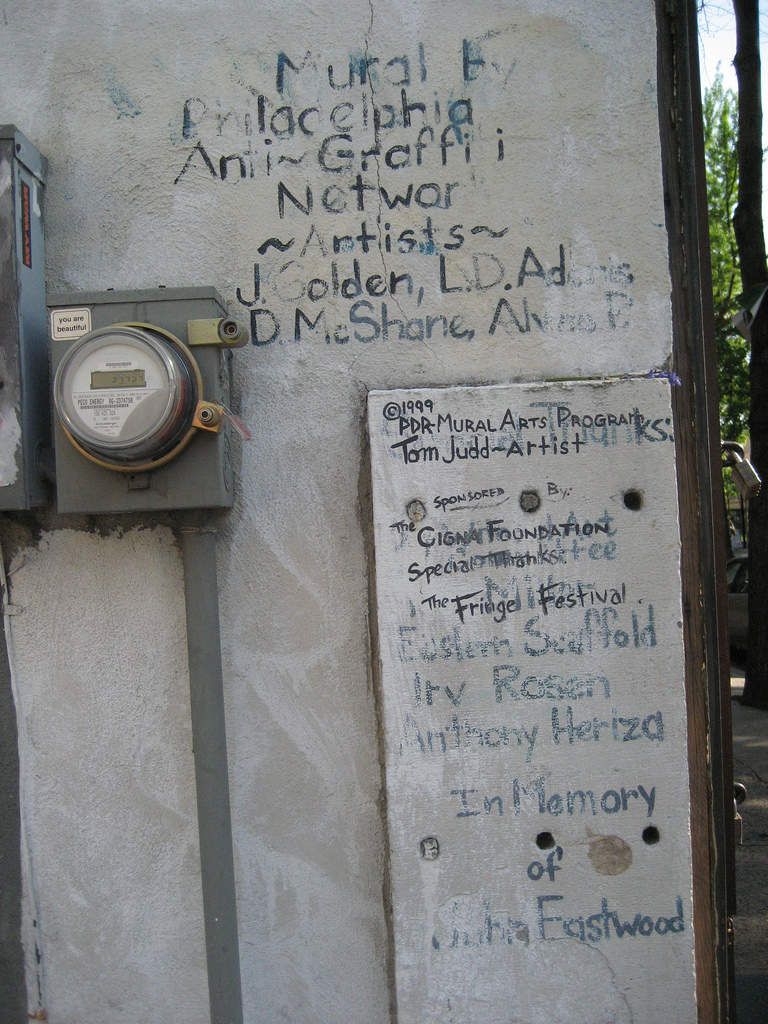 Mural By
Philadelphia
Anti~Graffiti
Networ
~Artists~
J. Golden, L.D. Adams
D. McShane, Alvno P.
you are
beautiful
PECO ENERGY
©1999
PDR-Mural Arts Program
Thanks:
Tom Judd~Artist
Sponsored By:
The Cigna Foundation
Special Thanks:
The Fringe Festival.
Eastern Scaffold
Irv Rosen
Anthony Heriza
In Memory
of
John Eastwood